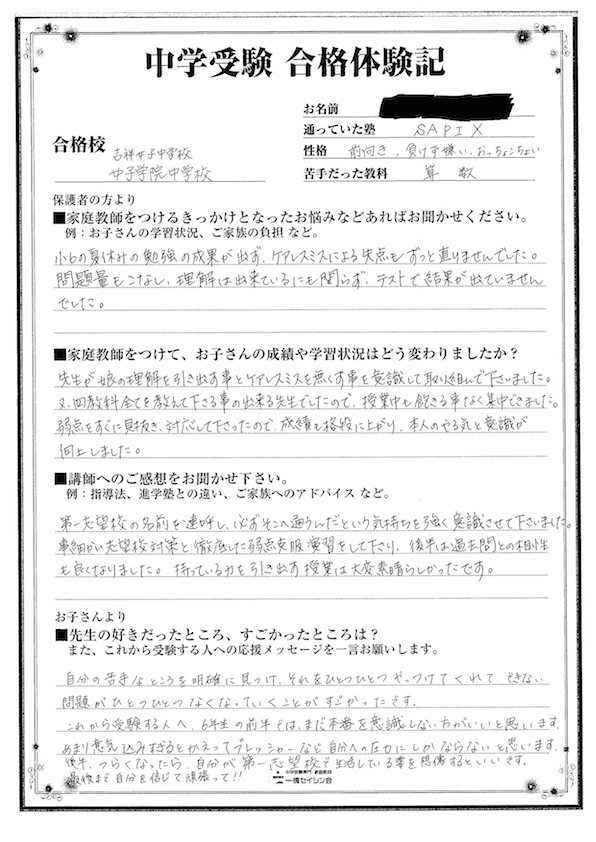 中学受験 合格体験記
お名前
通っていた塾 SAPIX
合格校 吉祥女子中学校
女子学院中学校
性格 前向き、負けず嫌い、おっちょこちょい
苦手だった教科 算数
保護者の方より
■家庭教師をつけるきっかけとなったお悩みなどあればお聞かせください。
例：お子さんの学習状況、ご家族の負担 など。
小6の夏休みの勉強の成果が出ず、ケアレスミスによる失点もずっと直りませんでした。
問題量もこなし、理解は出来ているにも関らず、テストで結果が出ていません
でした。
■家庭教師をつけて、お子さんの成績や学習状況はどう変わりましたか？
先生が娘の理解を引き出す事とケアレスミスを無くす事を意識して取り組んで下さいました。
又、四教科全てを教えて下さる事の出来る先生でしたので、授業中も飽きる事なく集中できました。
弱点をすぐに見抜き、対応して下さったので、成績も格段に上がり、本人のやる気と意識が
向上しました。
■講師へのご感想をお聞かせ下さい。
例：指導法、進学塾との違い、ご家族へのアドバイス など。
第一志望校の名前を連呼し、必ずそこへ通うんだという気持ちを強く意識させて下さいました。
事細かい志望校対策と徹底した弱点克服演習をして下さり、後半は過去問との相性
も良くなりました。持っている力を引き出す授業は大変素晴らしかったです。
お子さんより
■先生の好きだったところ、すごかったところは？
また、これから受験する人への応援メッセージを一言お願いします。
自分の苦手なところを明確に見つけ、それをひとつひとつやっつけてくれて できない
問題がひとつひとつなくなっていくことがすごかったです。
これから受験する人へ、6年生の前半では、まだ本番を意識しない方がいいと思います。
あまり意気込みすぎるとかえってプレッシャーなど自分への圧力にしかならないと思います。
後半、つらくなったら、自分が第一志望校で生活している事を想像するといいです。
最後まで自分を信じて頑張って!!
中学受験専門 家庭教師
一橋セイシン会